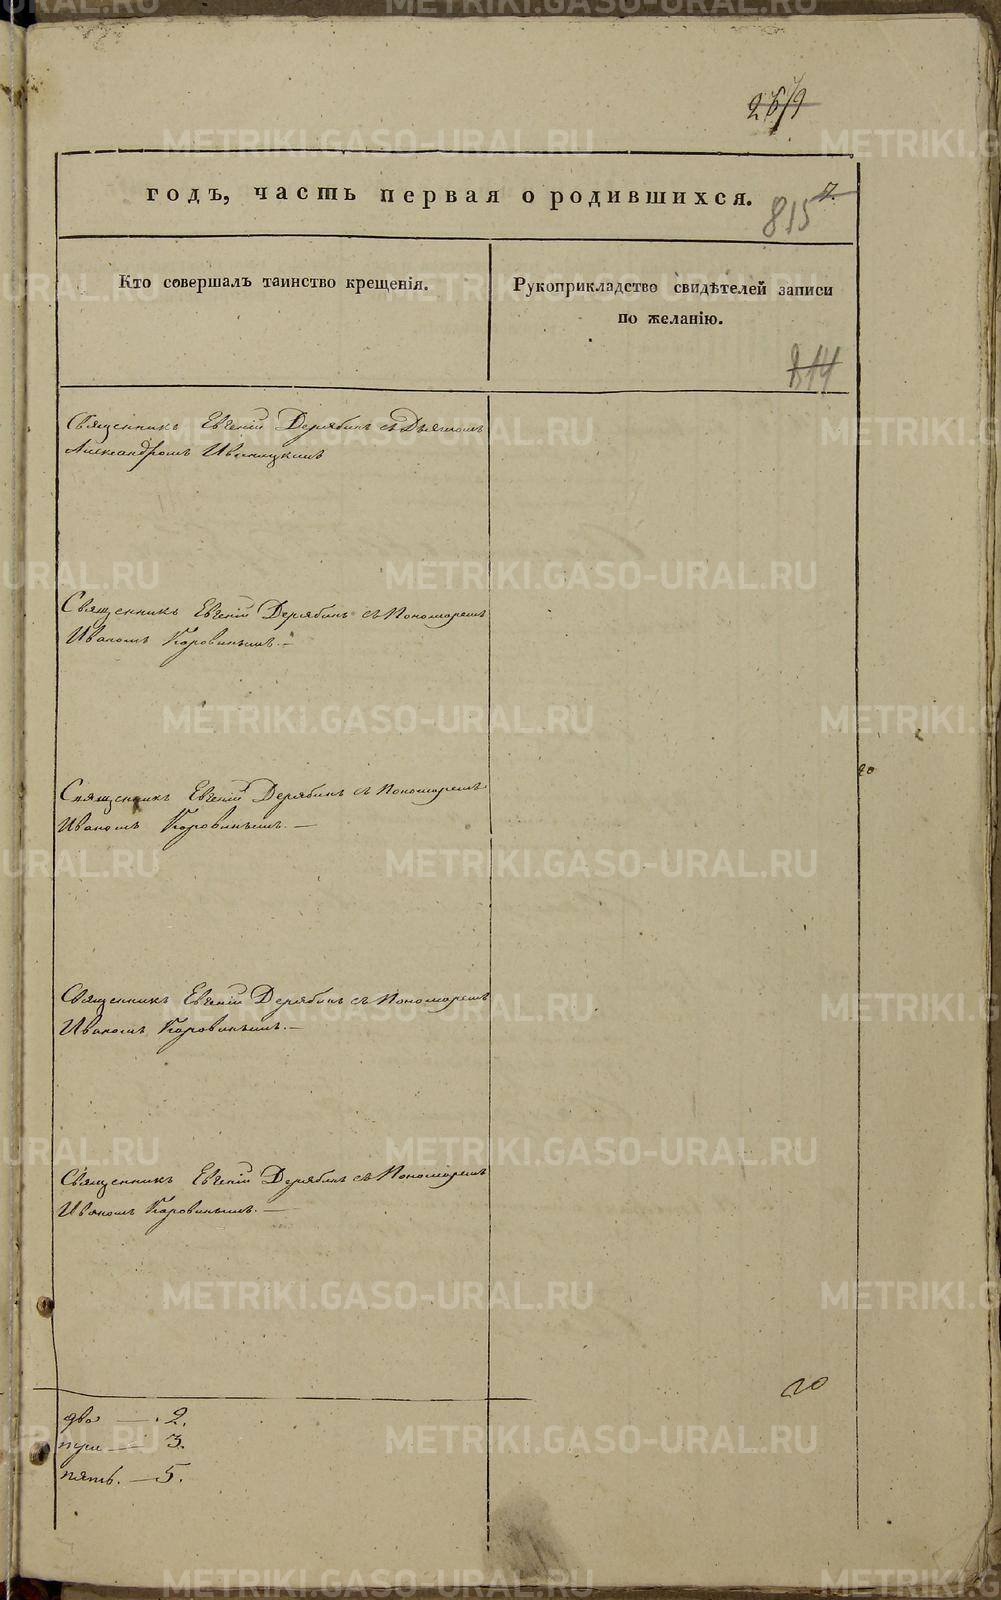 годъ, часть первая о родившихся.
815
Кто совершалъ таинство крещенія.
Рукоприкладство свидѣтелей записи
по желанію.
814
Священникъ Евгеній Дерябинъ съ Дьячкомъ
Александромъ
Священникъ Евгеній Дерябинъ съ Пономаремъ
Иваномъ Коровинымъ. —
Священникъ Евгеній Дерябинъ съ Пономаремъ
Иваномъ Коровинымъ. —
Священникъ Евгеній Дерябинъ съ Пономаремъ
Иваномъ Коровинымъ. —
Священникъ Евгеній Дерябинъ съ Пономаремъ
Иваномъ Коровинымъ. —
два — . 2.
три — 3.
пять. — 5.
METRIKI.GASO-URAL.RU